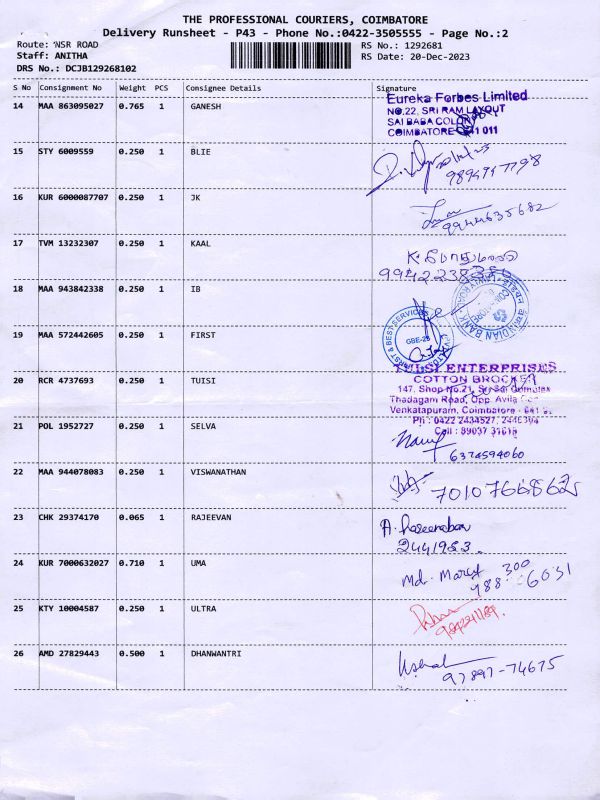 THE PROFESSIONAL COURIERS, COIMBATORE
Delivery Runsheet - P43 - Phone No.:0422-3505555 - Page No.:2
Route: NSR ROAD
RS No.: 1292681
Staff: ANITHA
RS Date: 20-Dec-2023
DRS No.: DCJB129268102
S No Consignment No Weight PCS Consignee Details Signature
14 MAA 863095027 0.765 1 GANESH
Eureka Forbes Limited
NO.22, SRI RAM LAYOUT
SAI BABA COLONY
COIMBATORE 011
15 STY 6009559 0.250 1 BLIE
16 KUR 6000087707 0.250 1 JK
9944635682
17 TVM 13232307 0.250 1 KAAL
18 MAA 943842338 0.250 1 IB
INDIAN BANK
19 MAA 572442605 0.250 1 FIRST
FIRST & BEST SERVICES
GBE-28
20 RCR 4737693 0.250 1 TUISI
TULSI ENTERPRISES
COTTON BROCKER
147, Shop No.21, Sri Sai Complex
Thadagam Road, Opp. Avila
Venkatapuram, Coimbatore
Ph : 0422 2434527,
Cell : 89037
21 POL 1952727 0.250 1 SELVA
6374594060
22 MAA 944078083 0.250 1 VISWANATHAN
7010766862
23 CHK 29374170 0.065 1 RAJEEVAN
2441953.
24 KUR 7000632027 0.710 1 UMA
25 KTY 10004587 0.250 1 ULTRA
26 AMD 27829443 0.500 1 DHANWANTRI
97897-74675